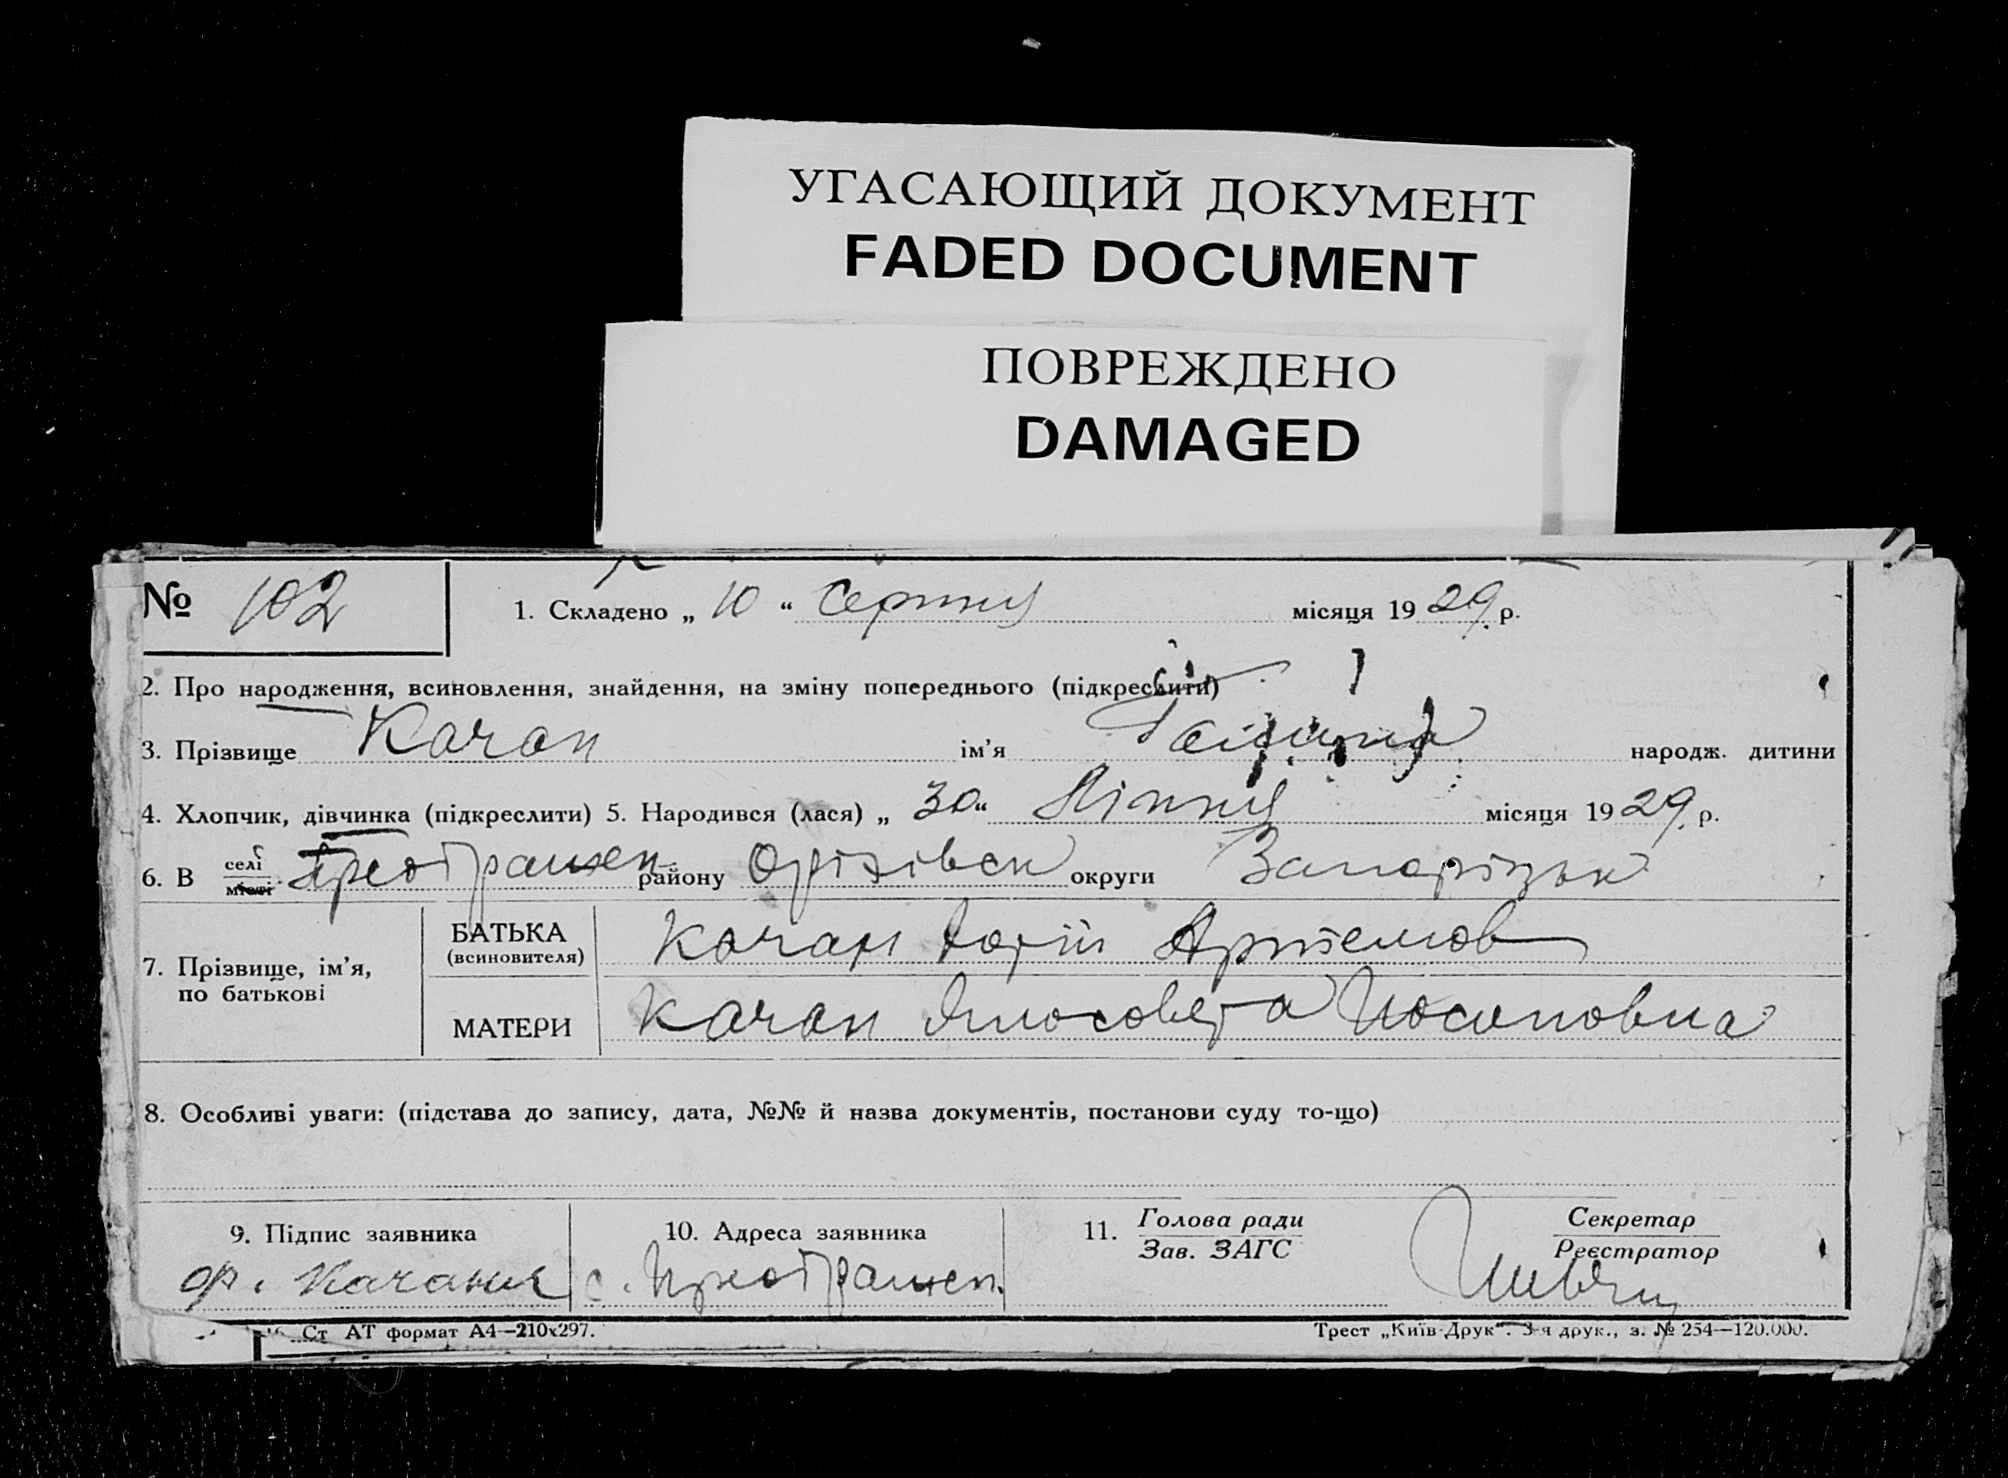 УГАСАЮЩИЙ ДОКУМЕНТ
FADED DOCUMENT
ПОВРЕЖДЕНО
DAMAGED
№ 102
1. Складено „ 10 “ Серпня місяця 19 29 р.
2. Про народження, всиновлення, знайдення, на зміну попереднього (підкреслити)
3. Прізвище Качан ім’я народж. дитини
4. Хлопчик, дівчинка (підкреслити) 5. Народився (лася) „ 30 “ Липня місяця 19 29 р.
6. В селі міσті Преображен району Оріхівськ округи Запорізьк
7. Прізвище, ім’я, по батькові
БАТЬКА (всиновителя) Качан Артемов
МАТЕРИ Качан Йосиповна
8. Особливі уваги: (підстава до запису, дата, №№ й назва документів, постанови суду то-що)
9. Підпис заявника
10. Адреса заявника
11. Голова ради Зав. ЗАГС
Секретар Реєстратор
Качан с. Преображен.
Ст АТ формат А4—210х297.
Трест „Київ-Друк“. 3-я друк., з. № 254—120.000.